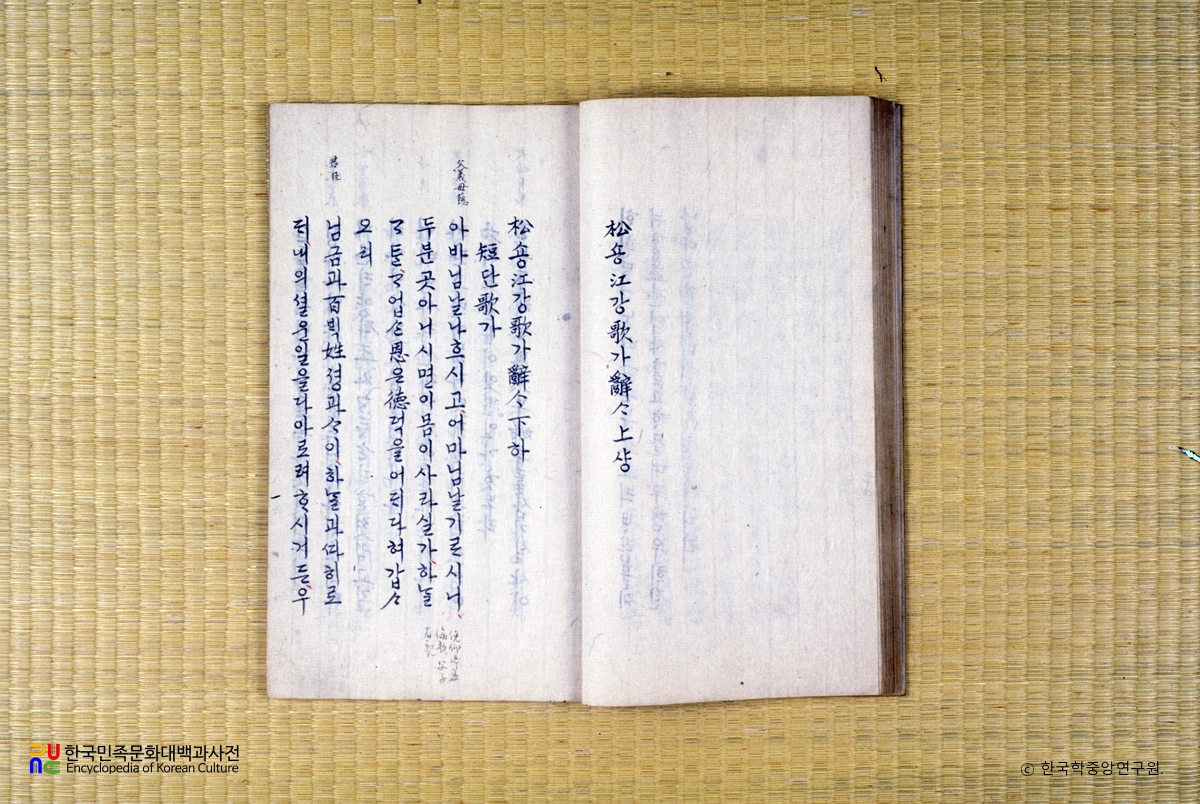 松숑江강歌가辭ᄉᆞ上샹
松숑江강歌가辭ᄉᆞ下하
短단歌가
父義母慈
아바님날나흐시고어마님날기ᄅᆞ시니
두분곳아니시면이몸이사라실가하ᄂᆞᆯ
ᄀᆞᄐᆞᆫᄀᆞ업ᄉᆞᆫ恩은德덕을어ᄃᆡ다혀갑ᄉᆞ
오리
君臣
님금과百ᄇᆡᆨ姓셩과ᄉᆞ이하ᄂᆞᆯ과ᄯᅡ히로
ᄃᆡ내의셜운일을다아로려ᄒᆞ시거든우
한국민족문화대백과사전
Encyclopedia of Korean Culture
© 한국학중앙연구원.